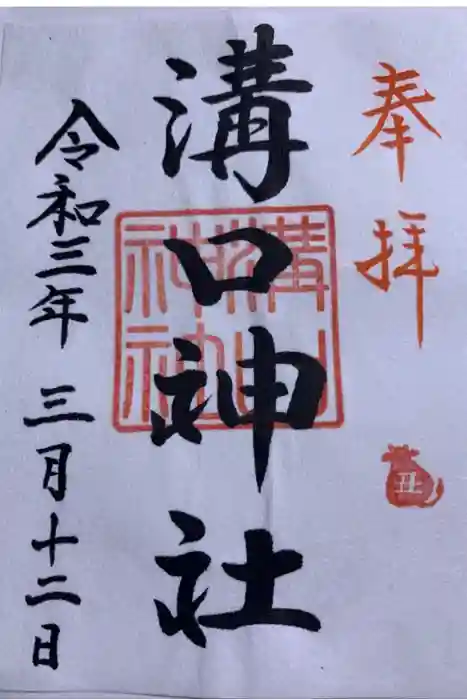 奉拝
丑
溝口神社
令和三年 三月十二日